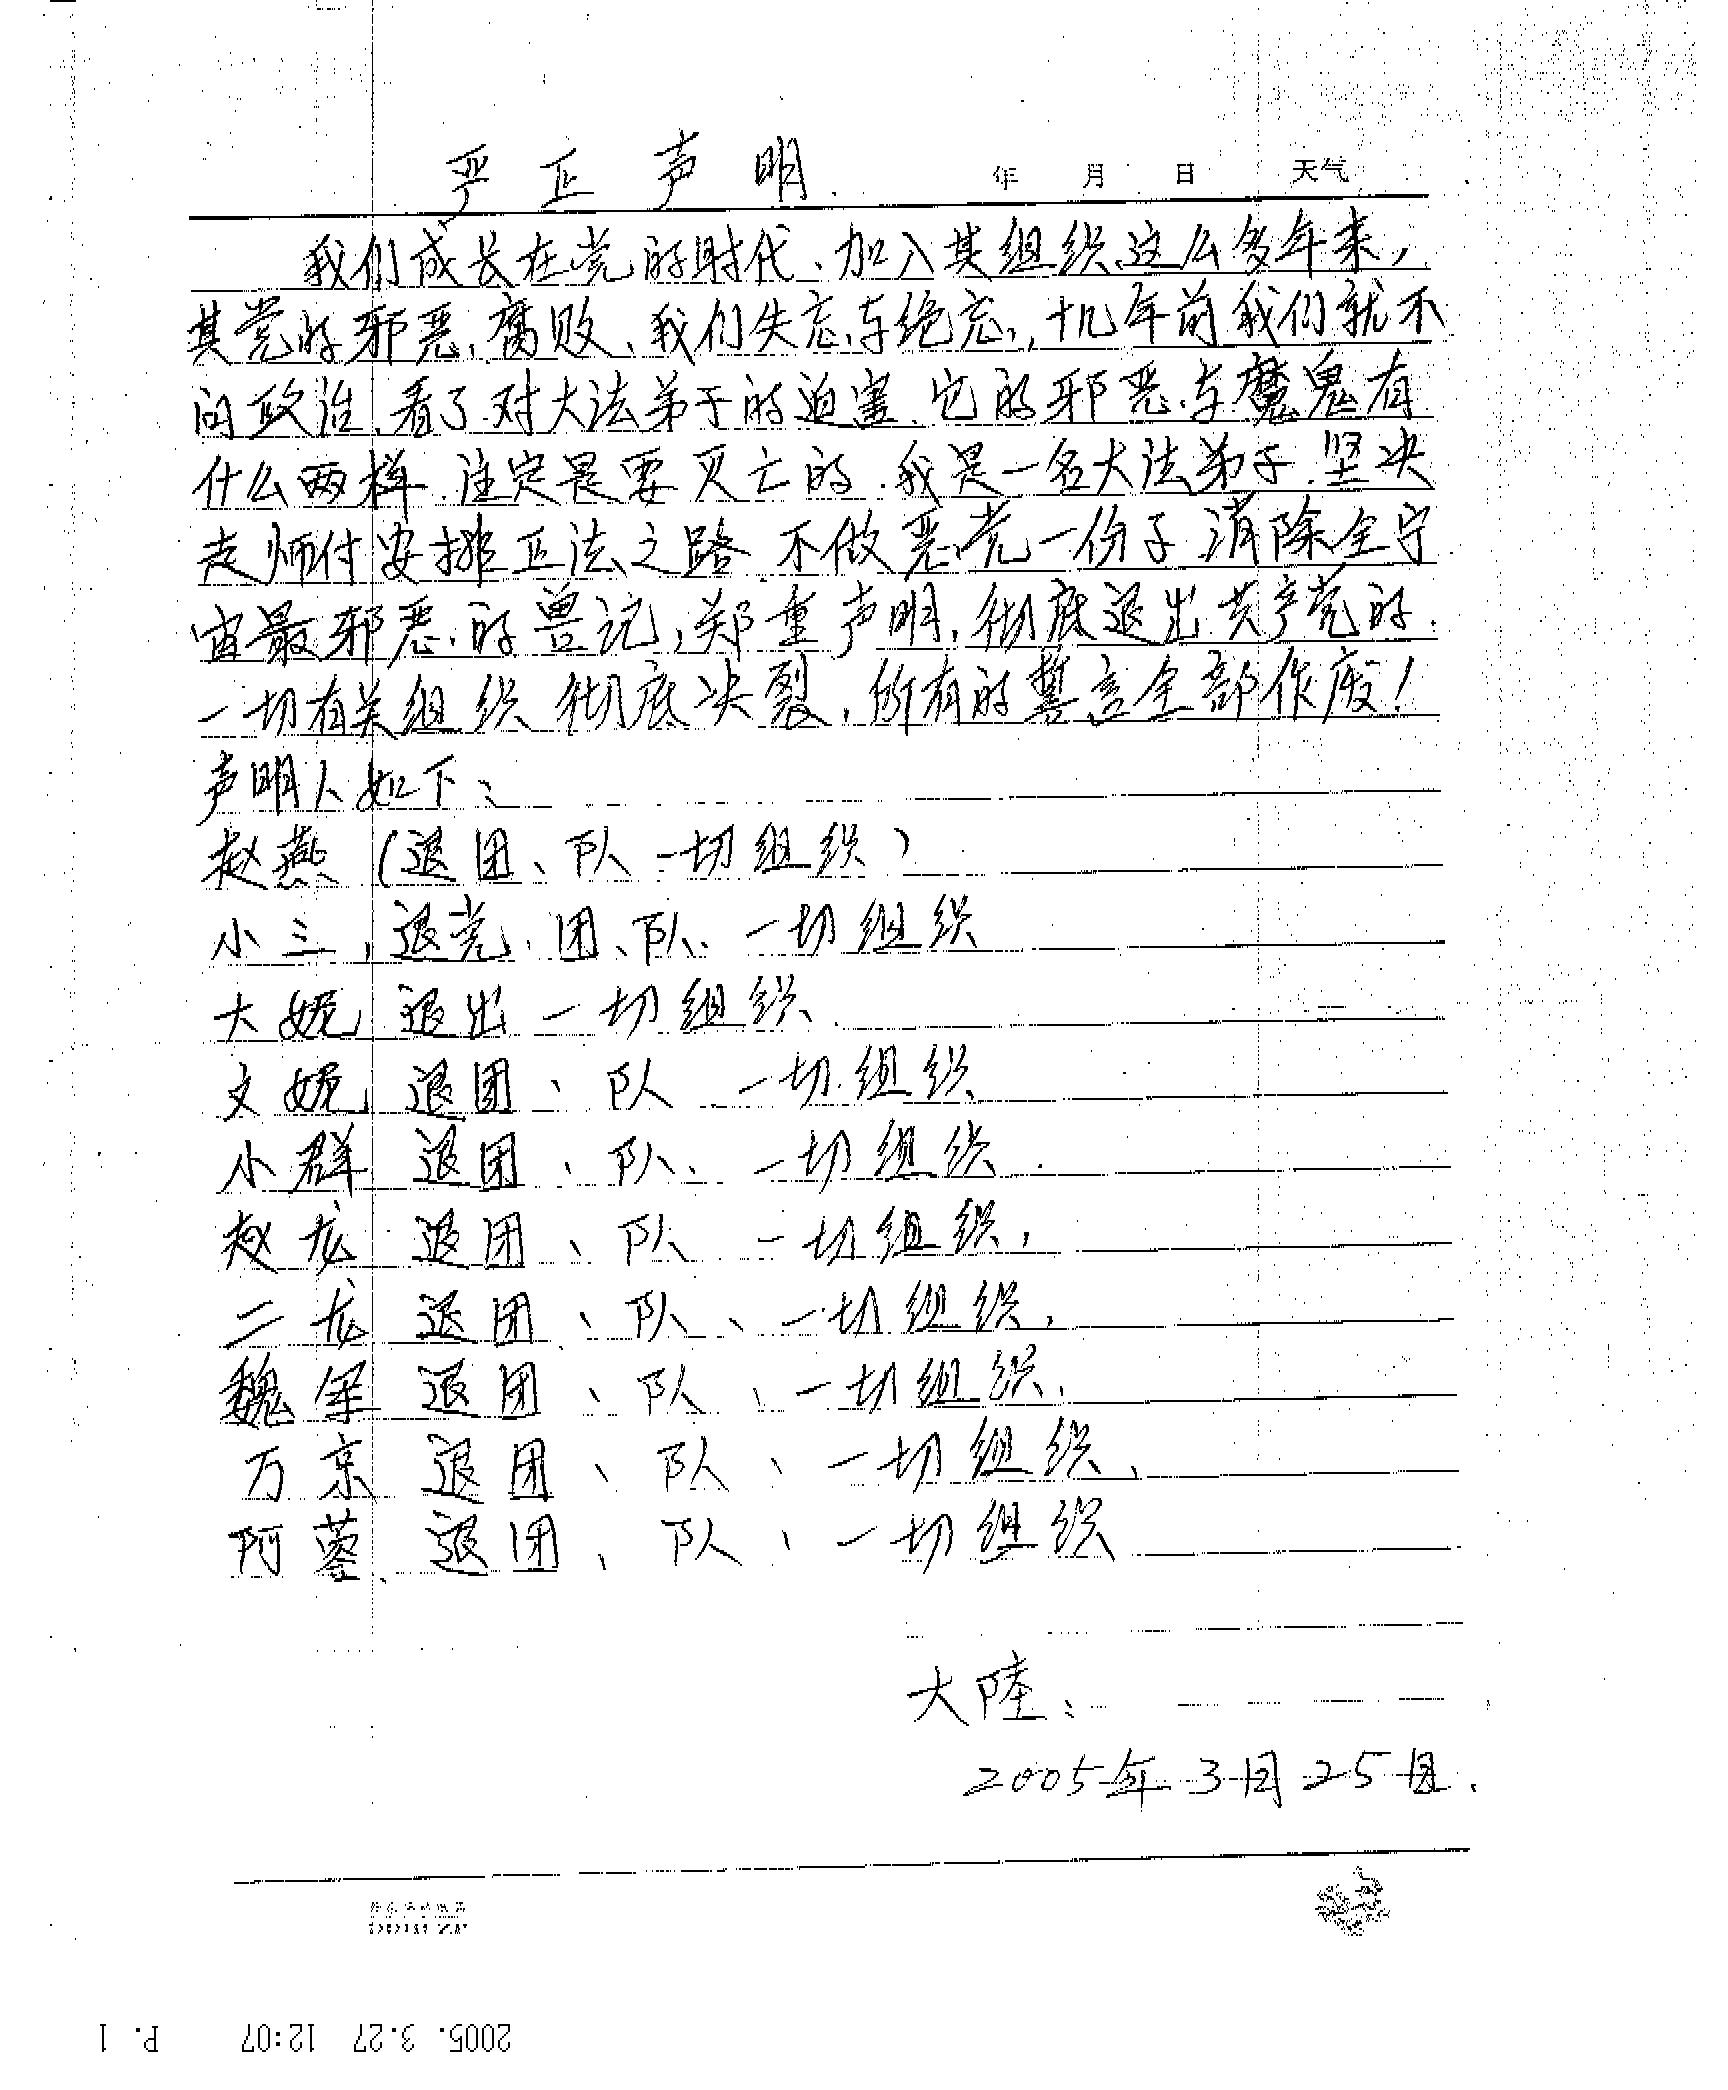 严正声明. 年 月 日 天气
我们成长在党的时代、加入其组织这么多年来,
其党的邪恶、腐败、我们失忘与绝忘,十几年前我们就不
问政治、看了对大法弟子的迫害、它的邪恶与魔鬼有
什么两样.注定是要灭亡的.我是一名大法弟子.坚决
走师付安排正法之路.不做恶党一份子 消除全宇
宙最邪恶的兽记,郑重声明,彻底退出共产党的.
一切有关组织 彻底决裂,所有的誓言全部作废!
声明人如下:
赵燕(退团、队 一切组织)
小三,退党、团、队、一切组织
大婉 退出一切组织、
文婉 退团、队 一切组织
小群 退团、队、一切组织.
赵龙 退团、队 一切组织,
二龙 退团、队、一切组织,
魏军 退团、队、一切组织,
万京 退团、队、一切组织、
阿 退团、队、一切组织
大陆:
2005年3月25日.
2005. 3.27 12:07 P. 1